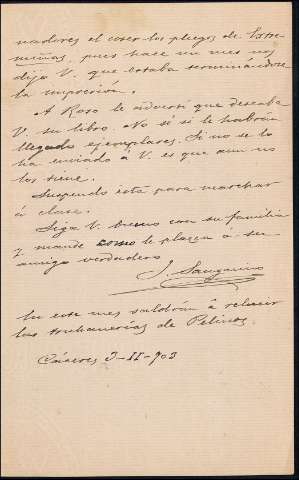 nadores el coser los pliegos de Extre-
meñas, pues hace un mes nos
dijo V. que estaba terminándose
la impresión.
A Roso le advertí que deseaba
V. su libro. No sé si le habrán
llegado ejemplares. Si no se lo
ha enviado á V. es que aun no
los tiene.
Suspendo esta para marchar
á clase.
Siga V. bueno con su familia
y mande como le plazca á su
amigo verdadero
J. Sanguino
En este mes saldrán á relucir
las truhanerías de
Cáceres 3-II-903